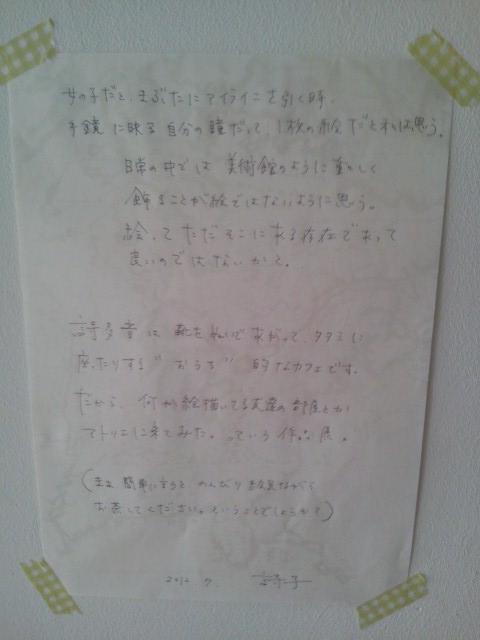 女の子だと、まぶたにアイラインを引く時、
手鏡に映る自分の瞳だって、1枚の絵だと私は思う。
日常の中では 美術館のように
飾ることが絵ではないように思う。
絵ってただそこに来る存在であって
良いのではないかと。
詩多音は 靴を脱いで あがって、タタミに
座ったりする"おうち"的なカフェです。
だから、何か絵描いてる友達の部屋とか
アトリエに来てみた。っていう作品展。
(まぁ 簡単に言うと のんびり 絵を見ながら
お茶してください。ということでしょうかと)
2012. 9.